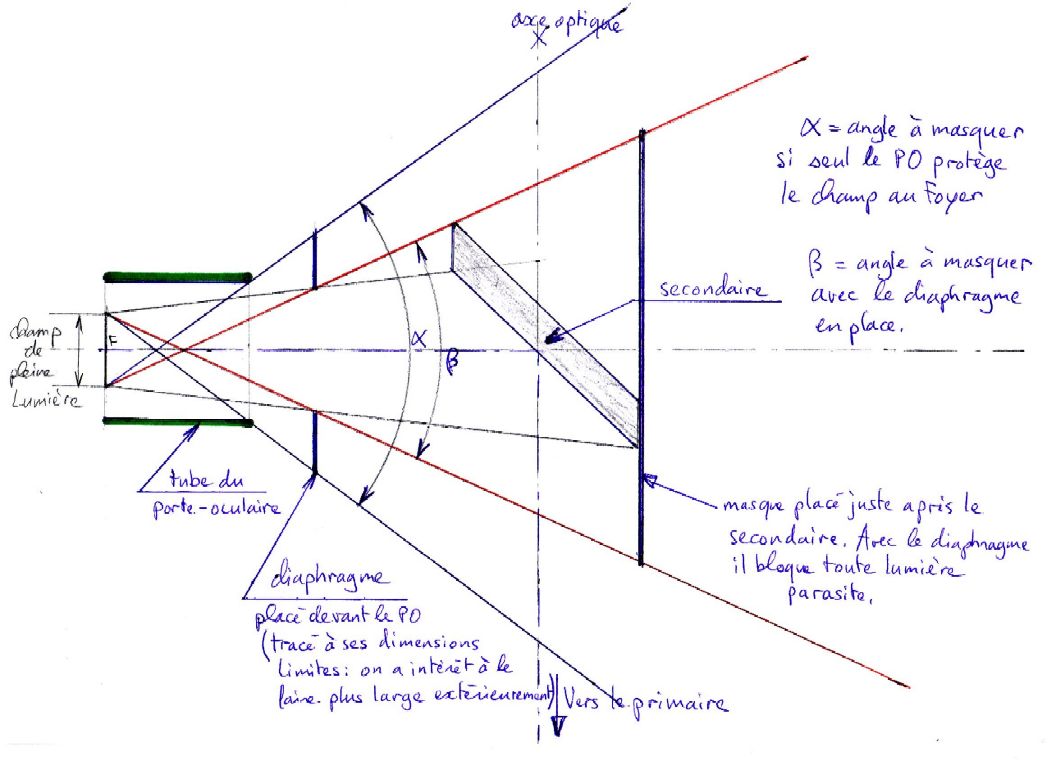 axe optique
α = angle à masquer
si seul le PO protège
le champ au Foyer
β = angle à masquer
avec le diaphragme
en place.
secondaire
champ
de
pleine
Lumière
F
α
β
tube du
porte-oculaire
diaphragme
placé devant le PO
(tracé à ses dimensions
limites: on a intérêt à le
faire plus large extérieurement)
Vers le primaire
masque placé juste après le
secondaire. Avec le diaphragme
il bloque toute lumière
parasite.